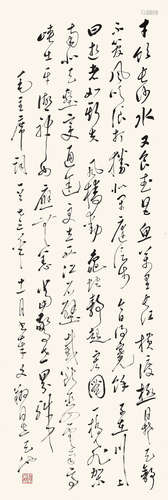 才饮长沙水又食武昌鱼万里长江横渡极目楚天舒
不管风吹浪打胜似闲庭信步今日得宽馀子在川上
曰逝者如斯夫风樯动龟蛇静起宏图一桥飞架
南北天堑变通途更立西江石壁截断巫山云雨高
峡出平湖神女应无恙当惊世界殊
毛主席词 十一月